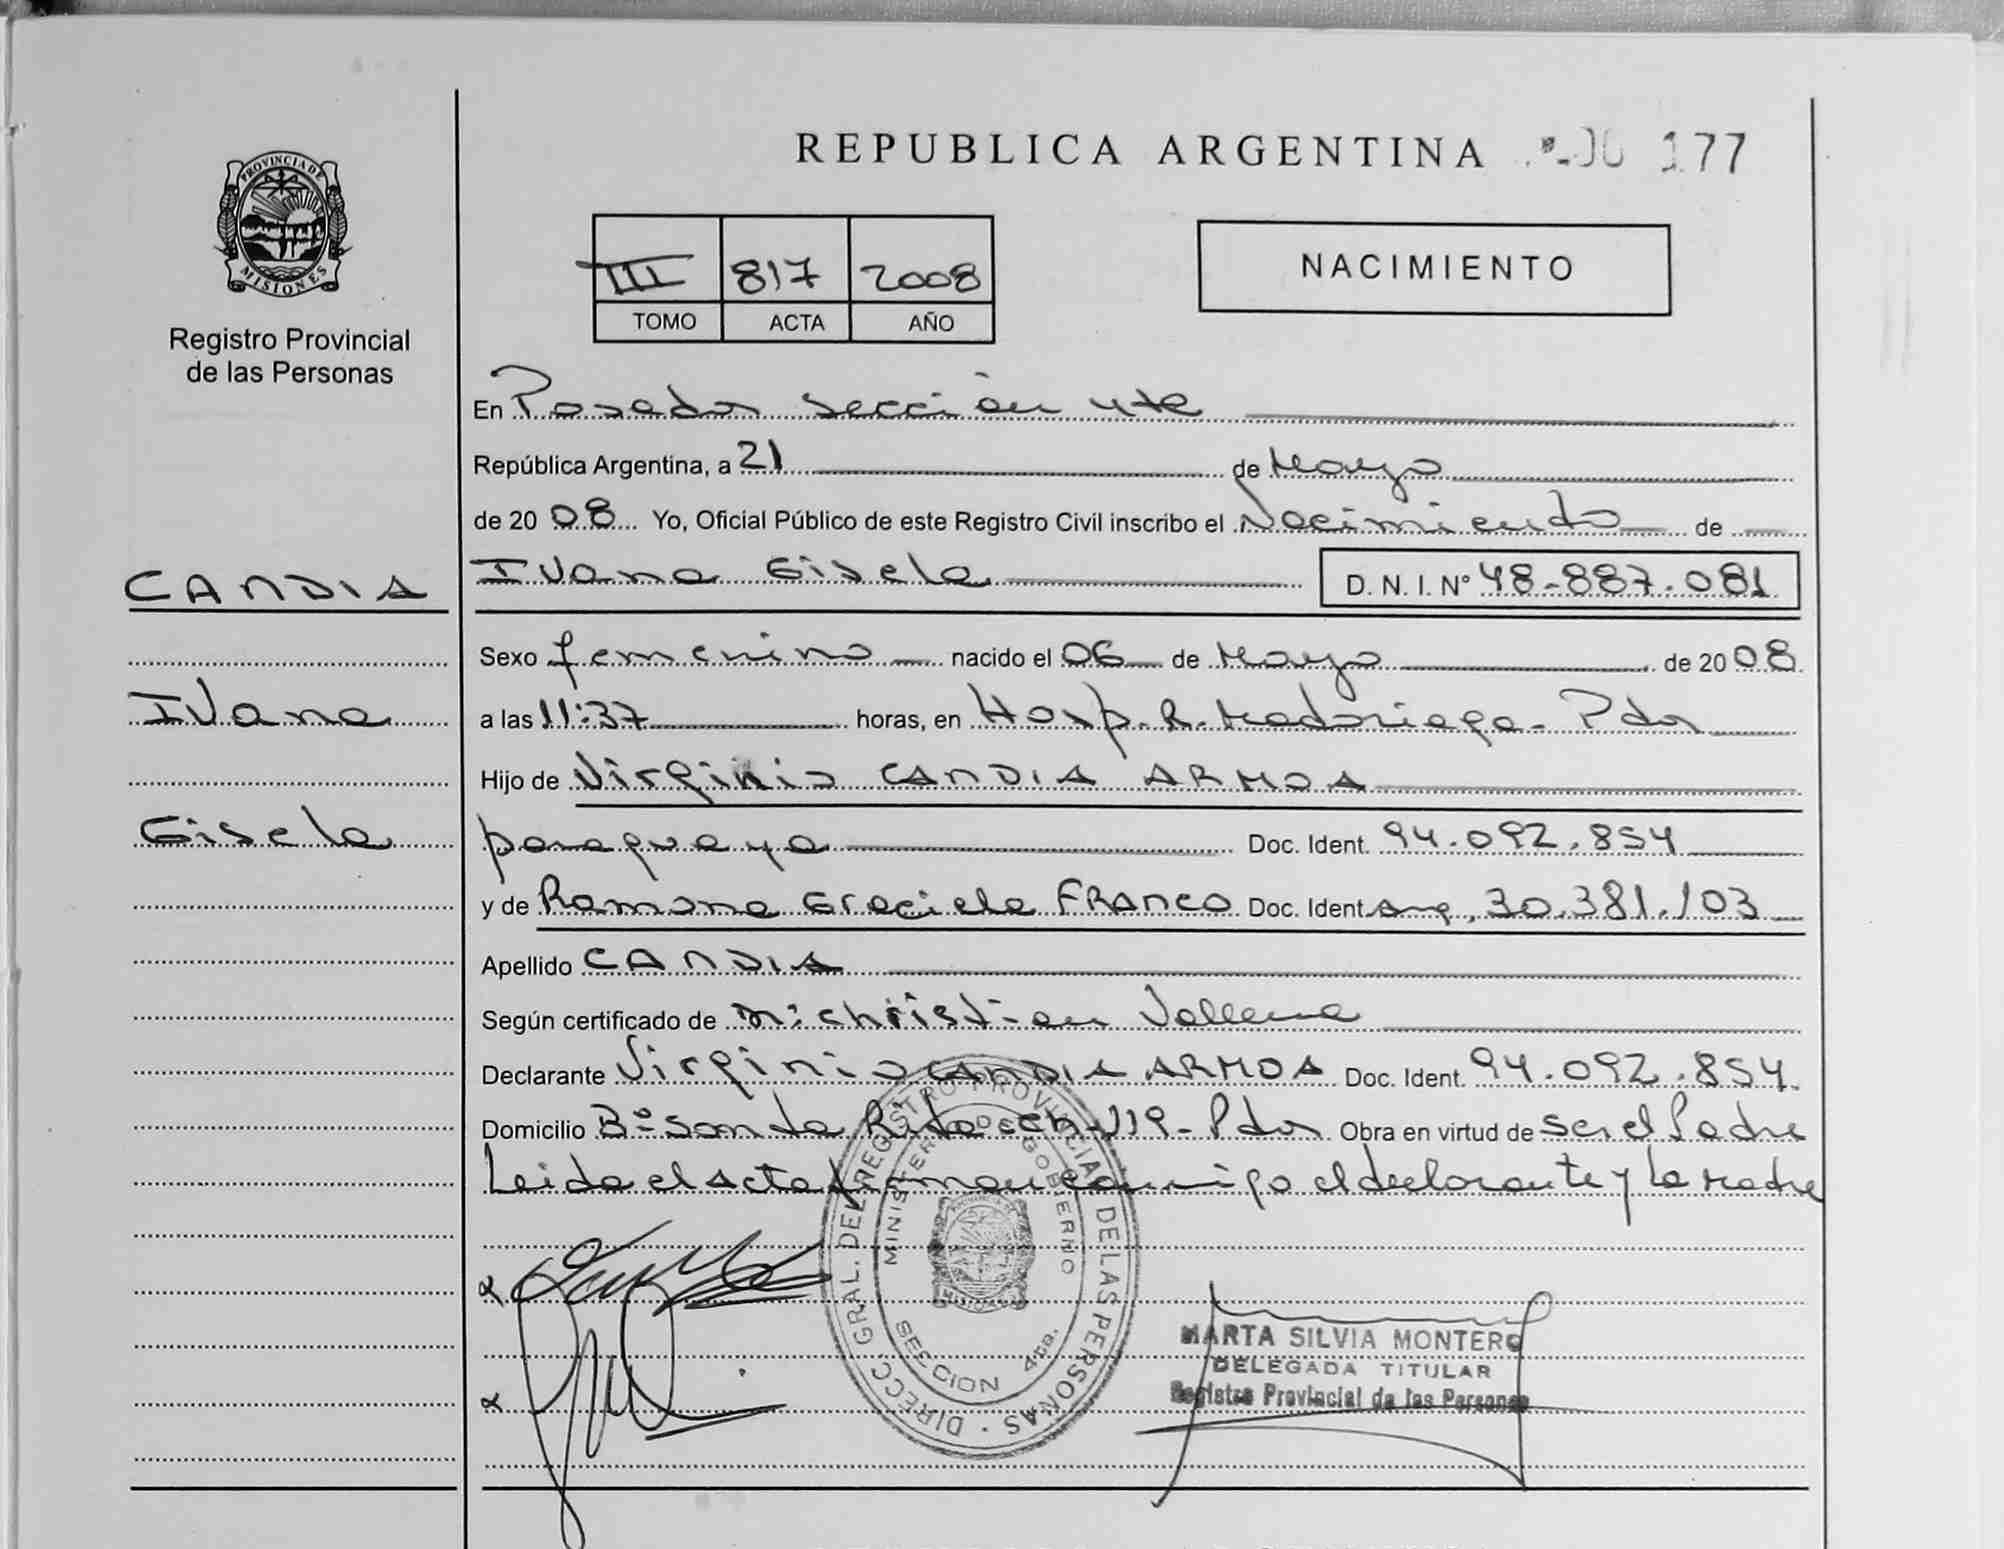 REPUBLICA ARGENTINA
177
PROVINCIA DE
MISIONES
Registro Provincial
de las Personas
III 817 2008
TOMO ACTA AÑO
NACIMIENTO
En Posadas Sección 4ta
República Argentina, a 21 de Mayo
de 2008 Yo, Oficial Público de este Registro Civil inscribo el Nacimiento de
CANDIA
Ivana Gisela D. N. I. Nº 48-887.081
Sexo femenino nacido el 06 de Mayo de 2008
Ivana
a las 11:37 horas, en Hosp. R. Madariaga - Pdas
Hijo de Virginio CANDIA ARMOA
Gisela
paraguayo Doc. Ident. 94.092.854
y de Ramona Graciela FRANCO Doc. Ident. Arg. 30.381.103
Apellido CANDIA
Según certificado de Christian
Declarante Virginio CANDIA ARMOA Doc. Ident. 94.092.854
Domicilio Bº Santa Rita Ch-119- Pdas Obra en virtud de ser el Padre
Leida el acta firman conmigo el declarante y la madre
DIRECC GRAL. DEL REGISTRO PROVINCIAL DE LAS PERSONAS
MINISTERIO DE GOBIERNO
MISIONES
SECCION 4ta.
MARTA SILVIA MONTERO
DELEGADA TITULAR
Registro Provincial de las Personas